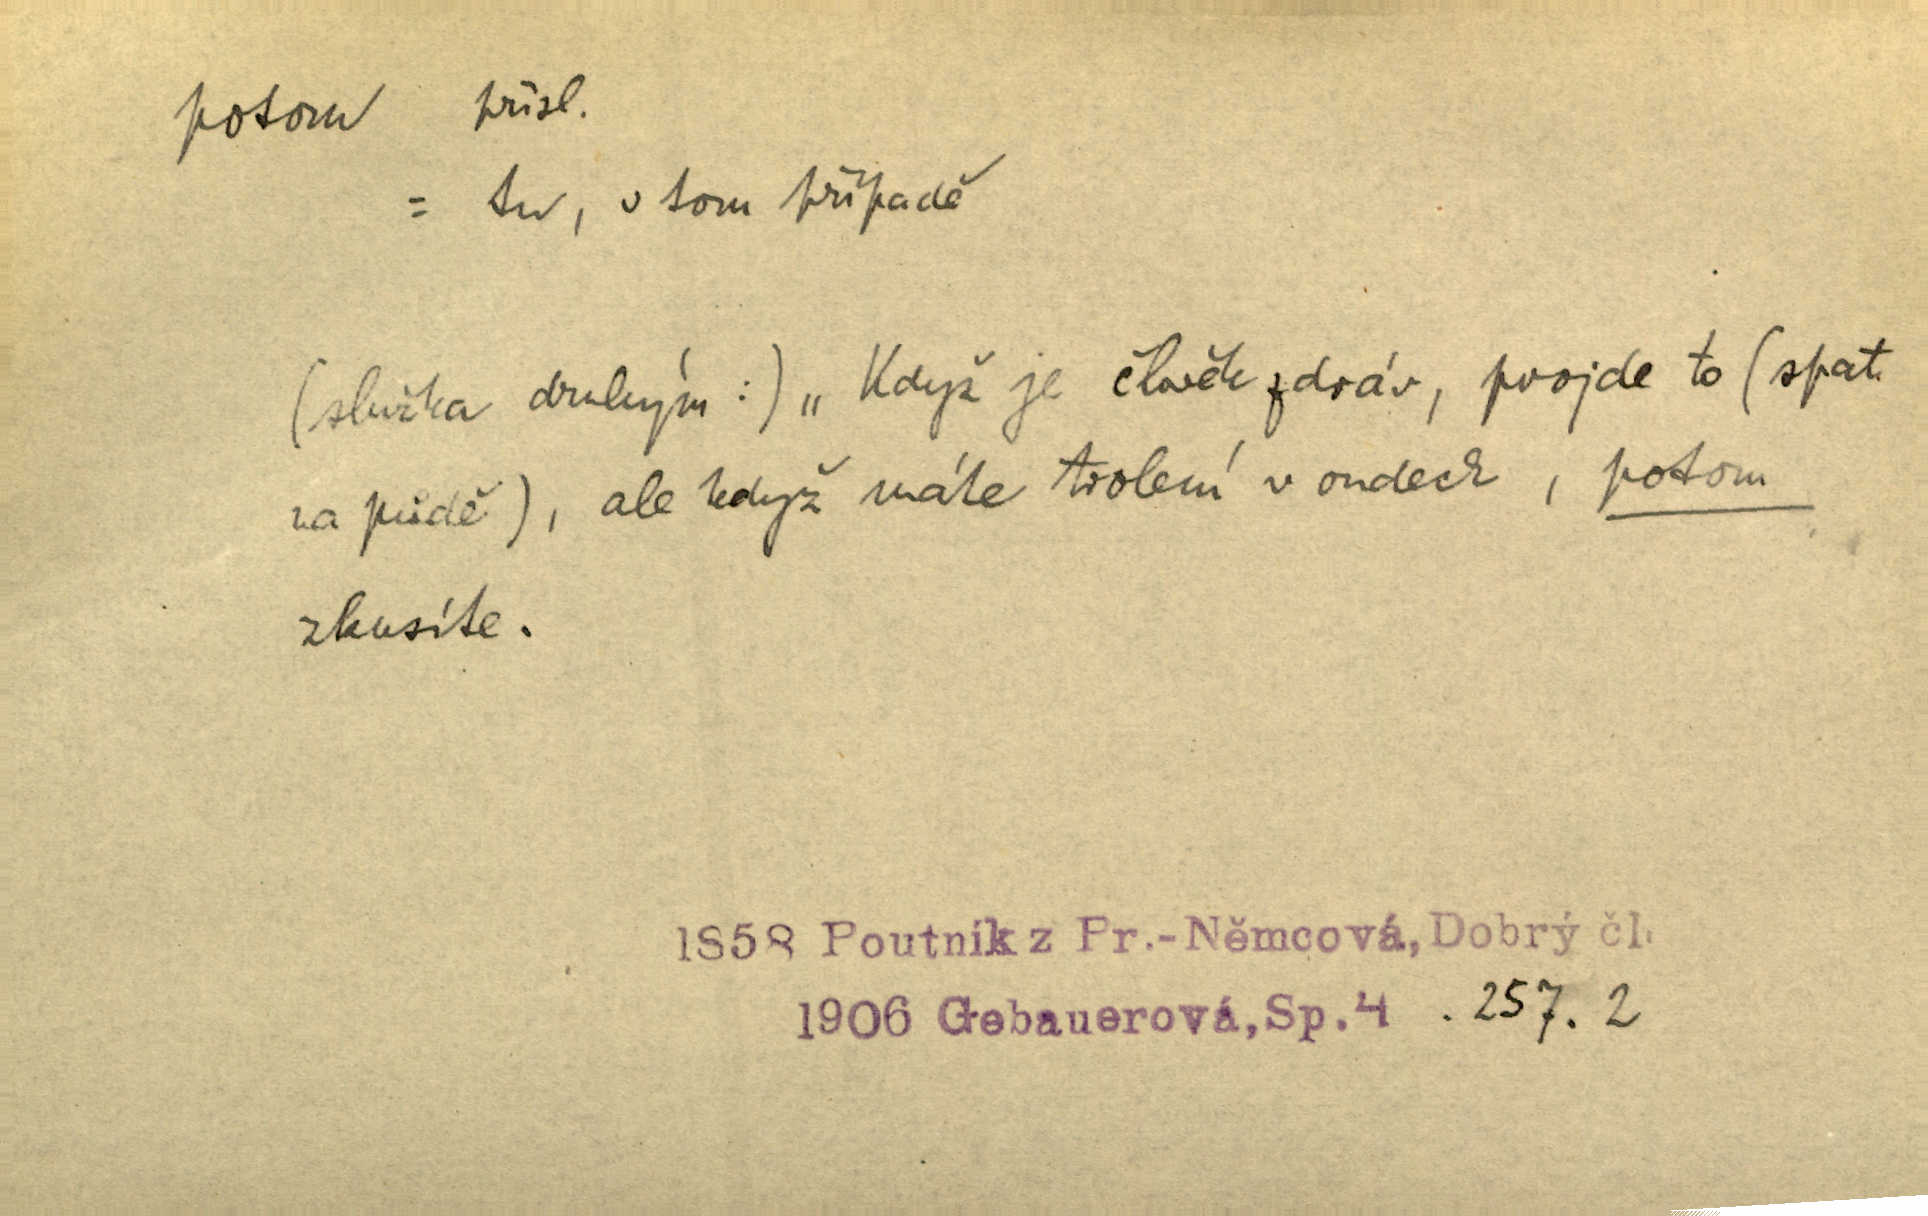 potom přísl.
= tu, v tom případě
(služka druhým :) „Když je člověk zdráv, projde to (spát
na půdě), ale když máte trolení v oudech, potom
zkusíte.
1858 Poutník z Pr.-Němcová, Dobrý čl.
1906 Gebauerová, Sp.4 . 257. 2